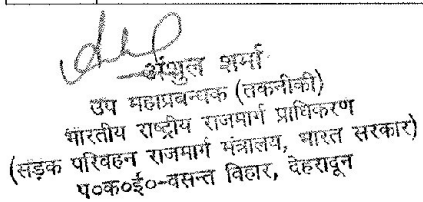 अंशुल शर्मा
उप महाप्रबन्धक (तकनीकी)
भारतीय राष्ट्रीय राजमार्ग प्राधिकरण
(सड़क परिवहन राजमार्ग मंत्रालय, भारत सरकार)
प०क०ई०-वसन्त विहार, देहरादून